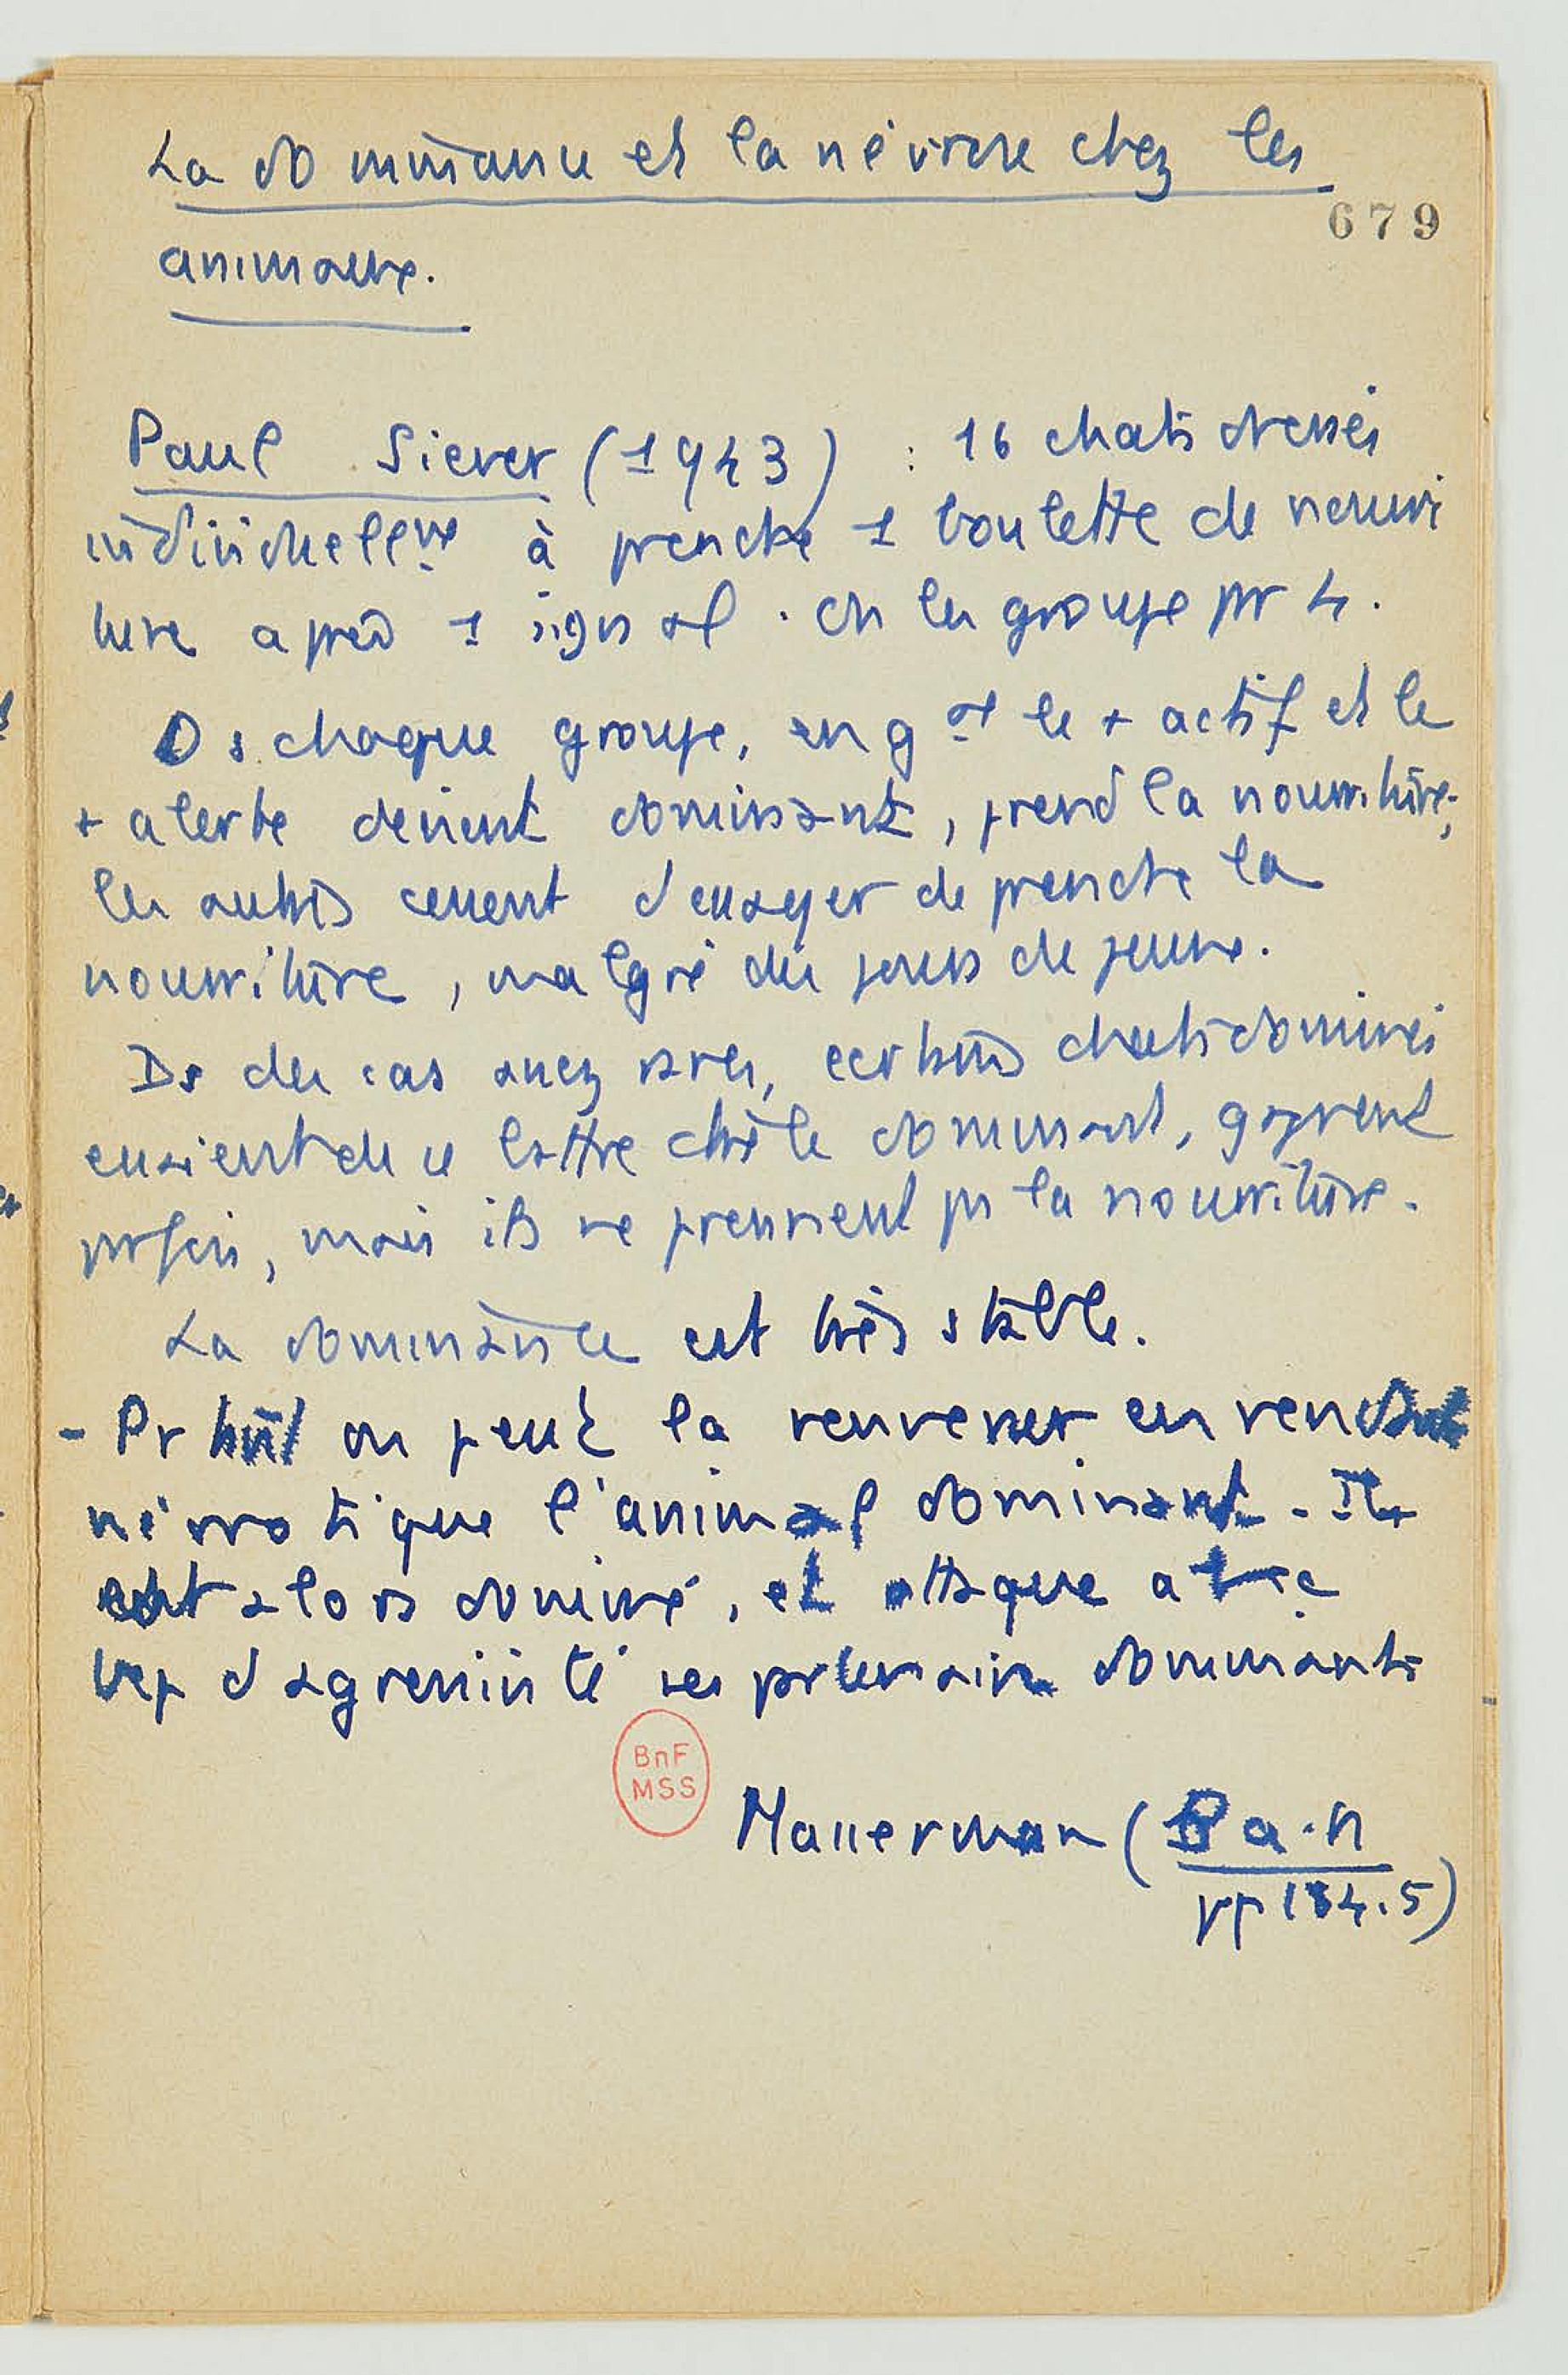 La dominance et la névrose chez les
679
animaux.
Paul Siever (1943) : 16 chats dressés
individuellemt à prendre 1 boulette de nourri
ture après 1 signal. On les groupe pr 4.
Ds chaque groupe, en gal le + actif et le
+ alerte devient dominant, prend la nourriture;
les autres cessent d'essayer de prendre la
nourriture, malgré des jours de jeune.
Ds des cas assez rares, certains chats dominés
essaient de se battre ctre le dominant, gagnent
parfois, mais ils ne prennent pas la nourriture.
La dominance est très stable.
- Pr tant on peut la renverser en rendant
névrotique l'animal dominant. Il
est alors dominé, et attaque avec
bcp d'agressivité ses partenaires dominants
BnF
MSS
Masserman (B a. N
pp 134.5)